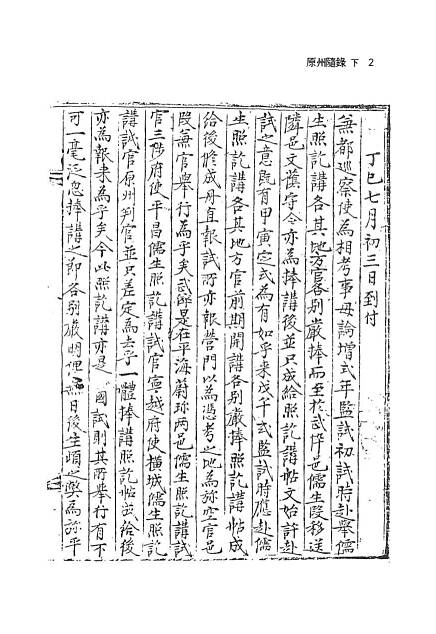 原州隨錄 下 2
丁巳七月初三日到付
兼都巡察使爲相考事毋論增式年監試初試時赴擧儒
生照訖講各其地方官各別嚴捧而至於武倅邑儒生段移送
隣邑文蔭守令亦爲捧講後並只成給照訖講帖文始許赴
試之意旣有甲寅定式爲有如乎來戊午式監試時應赴儒
生照訖講各其地方官前期開講各別嚴捧照訖講帖成
給後修成冊直報試所亦報營門以爲憑考之地爲旀空官邑
段兼官擧行爲乎矣武倅是在平海蔚珍兩邑儒生照訖講試
官三陟府使平昌儒生照訖講試官寧越府使橫城儒生照訖
講試官原州判官並只差定爲去乎一體捧講照訖帖出給後
亦爲報來爲乎矣今此照訖講亦是 國試則其所擧行有不
可一毫泛忽捧講之節各別嚴明俾無日後生頉之弊爲旀平